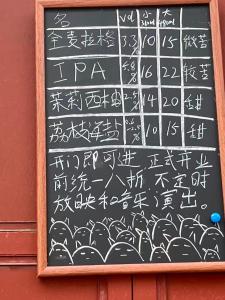 名 vol 小 大
全麦拉格 3.3% 10 15 微苦
IPA 16 22 较苦
茉莉西柚 14 20 甜
荔枝海盐 10 15 甜
开门即可进 正式开业
前统一八折 不定时
放映和音乐演出。